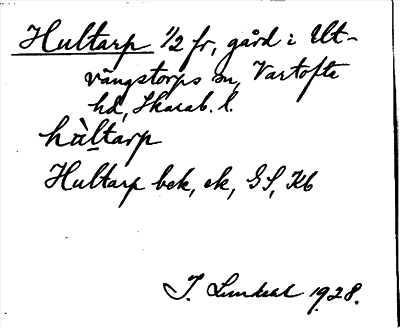 Hultarp 1/2 fr, gård i Ut-
vängstorps sn, Vartofta
hd, Skarab. l.
hùltarp
Hultarp bek, ek, GS, Kb
J. 1928.